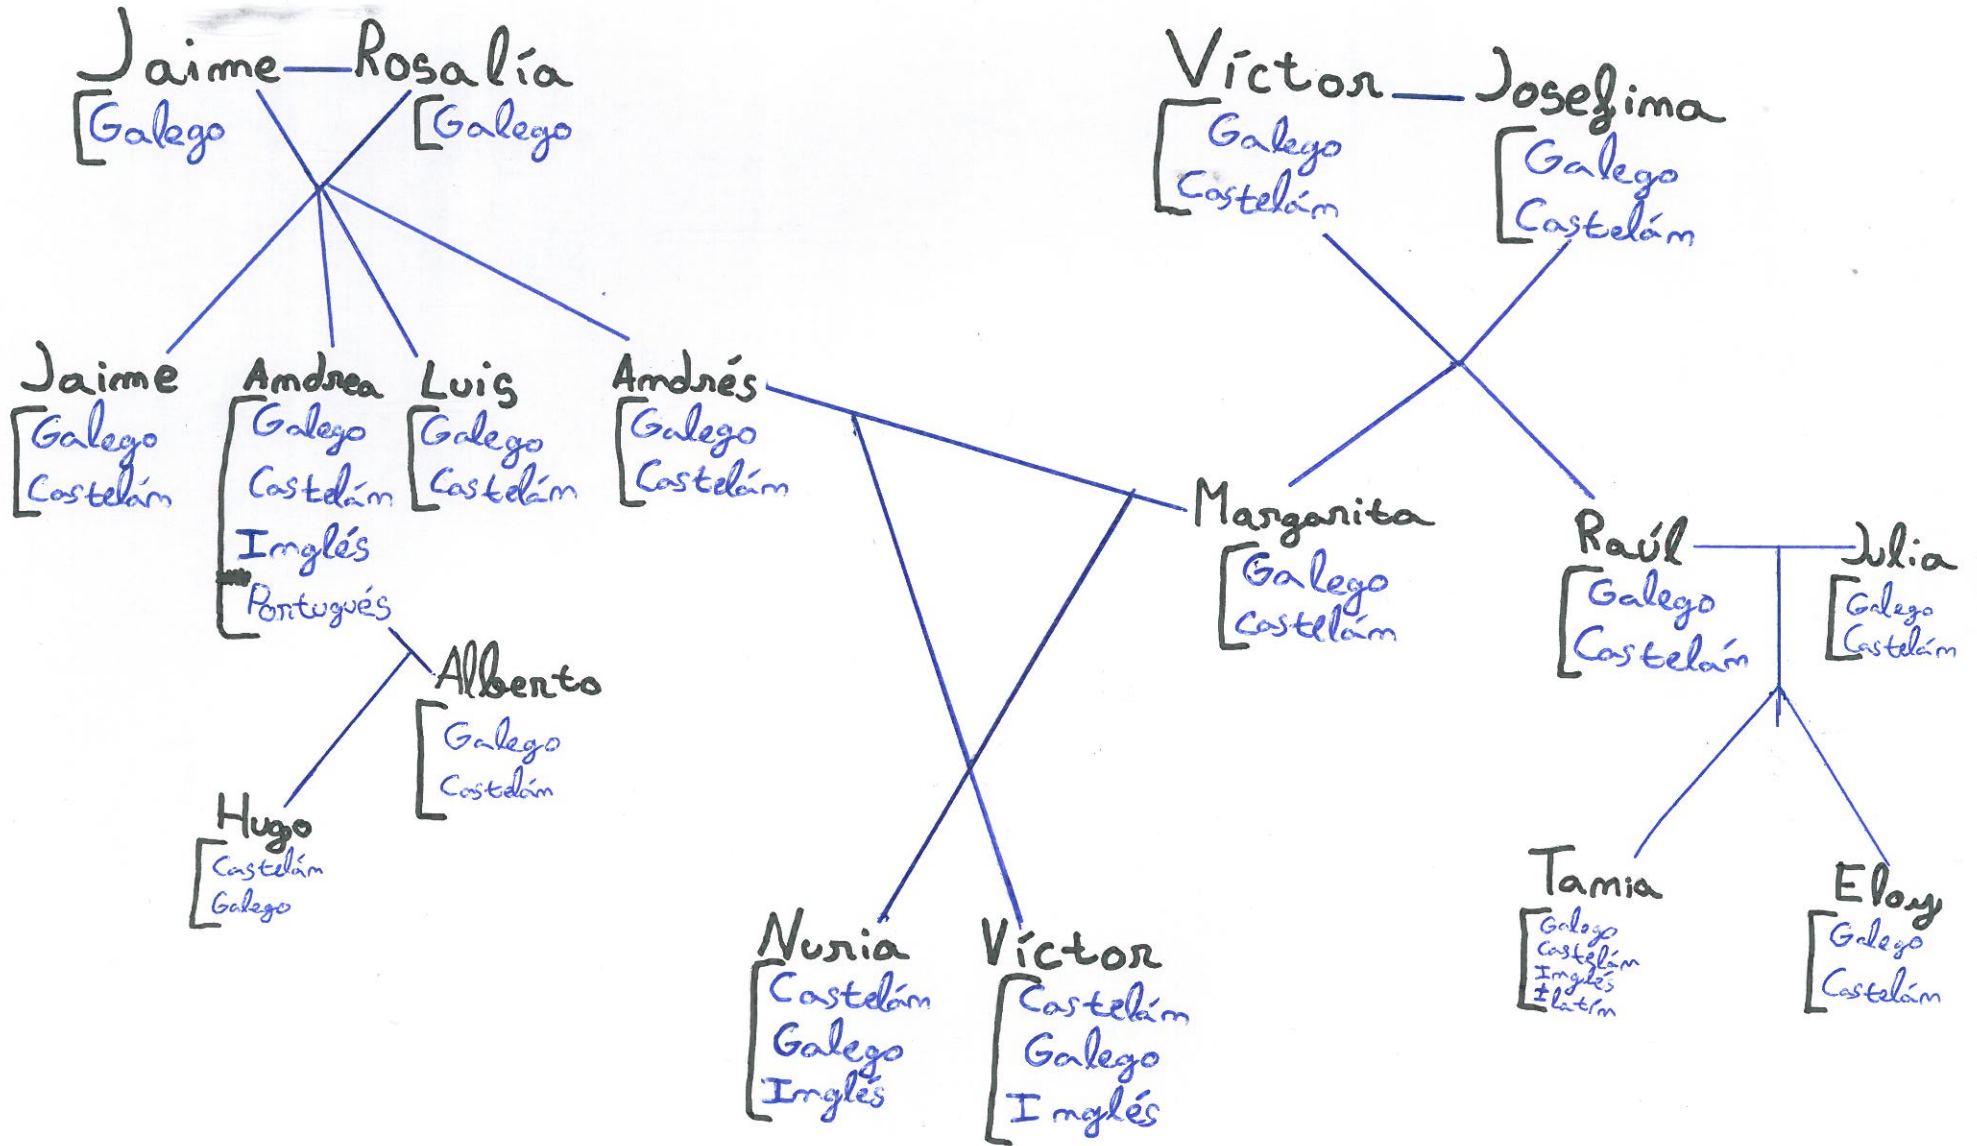 Jaime
Rosalía
Galego
Galego
Víctor
Josefina
Galego
Castelán
Galego
Castelán
Jaime
Galego
Castelán
Andrea
Galego
Castelán
Inglés
Portugués
Luis
Galego
Castelán
Andrés
Galego
Castelán
Margarita
Galego
Castelán
Raúl
Galego
Castelán
Julia
Galego
Castelán
Alberto
Galego
Castelán
Hugo
Castelán
Galego
Nuria
Castelán
Galego
Inglés
Víctor
Castelán
Galego
Inglés
Tania
Galego
Castelán
Inglés
± latín
Eloy
Galego
Castelán